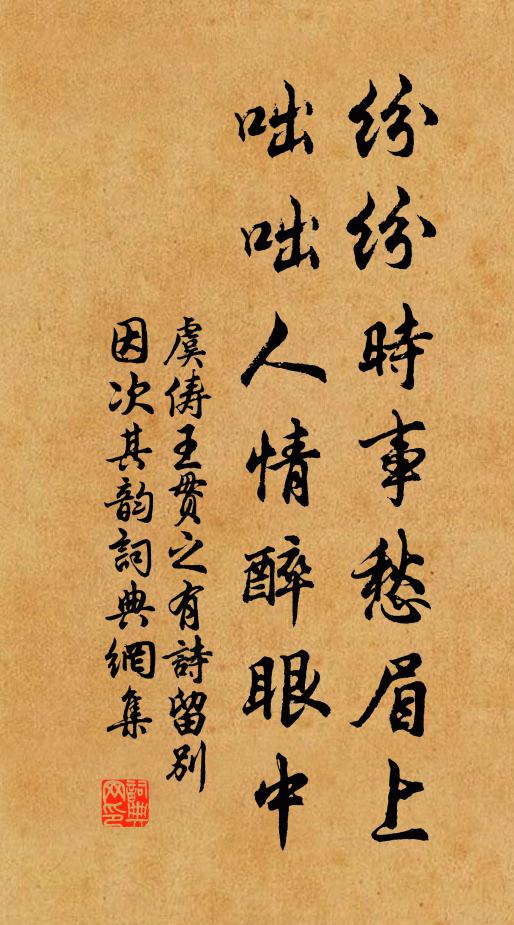 紛紛時事愁眉上
咄咄人情醉眼中
虞儔王貫之有詩留別
因次其韵詞典網集
詞典
网印